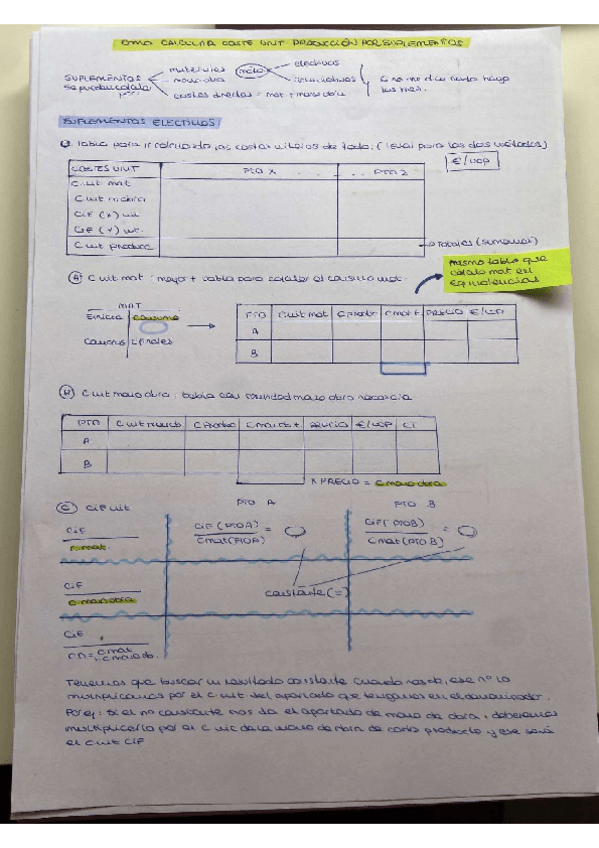 COMO CALCULAR COSTE UNIT PRODUCCIÓN POR SUPLEMENTOS
SUPLEMENTOS
se puede calcular
por:
materiales
mano obra
costes directos = mat + mano obra
electivos
SUPLEMENTOS ELECTIVOS:
① Tabla para ir calculando los costes unitarios de todo: (igual para los dos métodos)
€/UCP
COSTES UNIT PTO X . . . . . PTO Z
C unit mat
C unit m obra
CIF (x) unit
CIF (y) unit.
C unit produce → totales (sumamos)
Ⓐ C unit mat: mayor + tabla para calcular el consumo mat.
Mismo tabla que
calculo mat en
equivalencias
MAT
E inicial consumo
Compras E finales
PTO C unit mat C produc C mat t PRECIO €/UCP
A
B
Ⓑ C unit mano obra: tabla con cantidad mano obra necesaria
PTO C unit mob C Produc C mano ob t PRECIO €/UCP CT
A
B
x PRECIO = C mano obra
Ⓒ CIF unit
PTO A PTO B
CIF
C mat.
CIF (PTO A)
C mat (PTO A)
=
CIF (PTO B)
C mat (PTO B)
=
CIF
C mano obra
constante (=)
CIF
Tenemos que buscar un resultado constante cuando nos da, ese nº lo
multiplicamos por el C unit del apartado que tengamos en el denominador.
Por ej: si el nº constante nos da el apartado de mano de obra, deberemos
multiplicarlo por el C unit de la mano de obra de cada producto y ese será
el C unit CIF